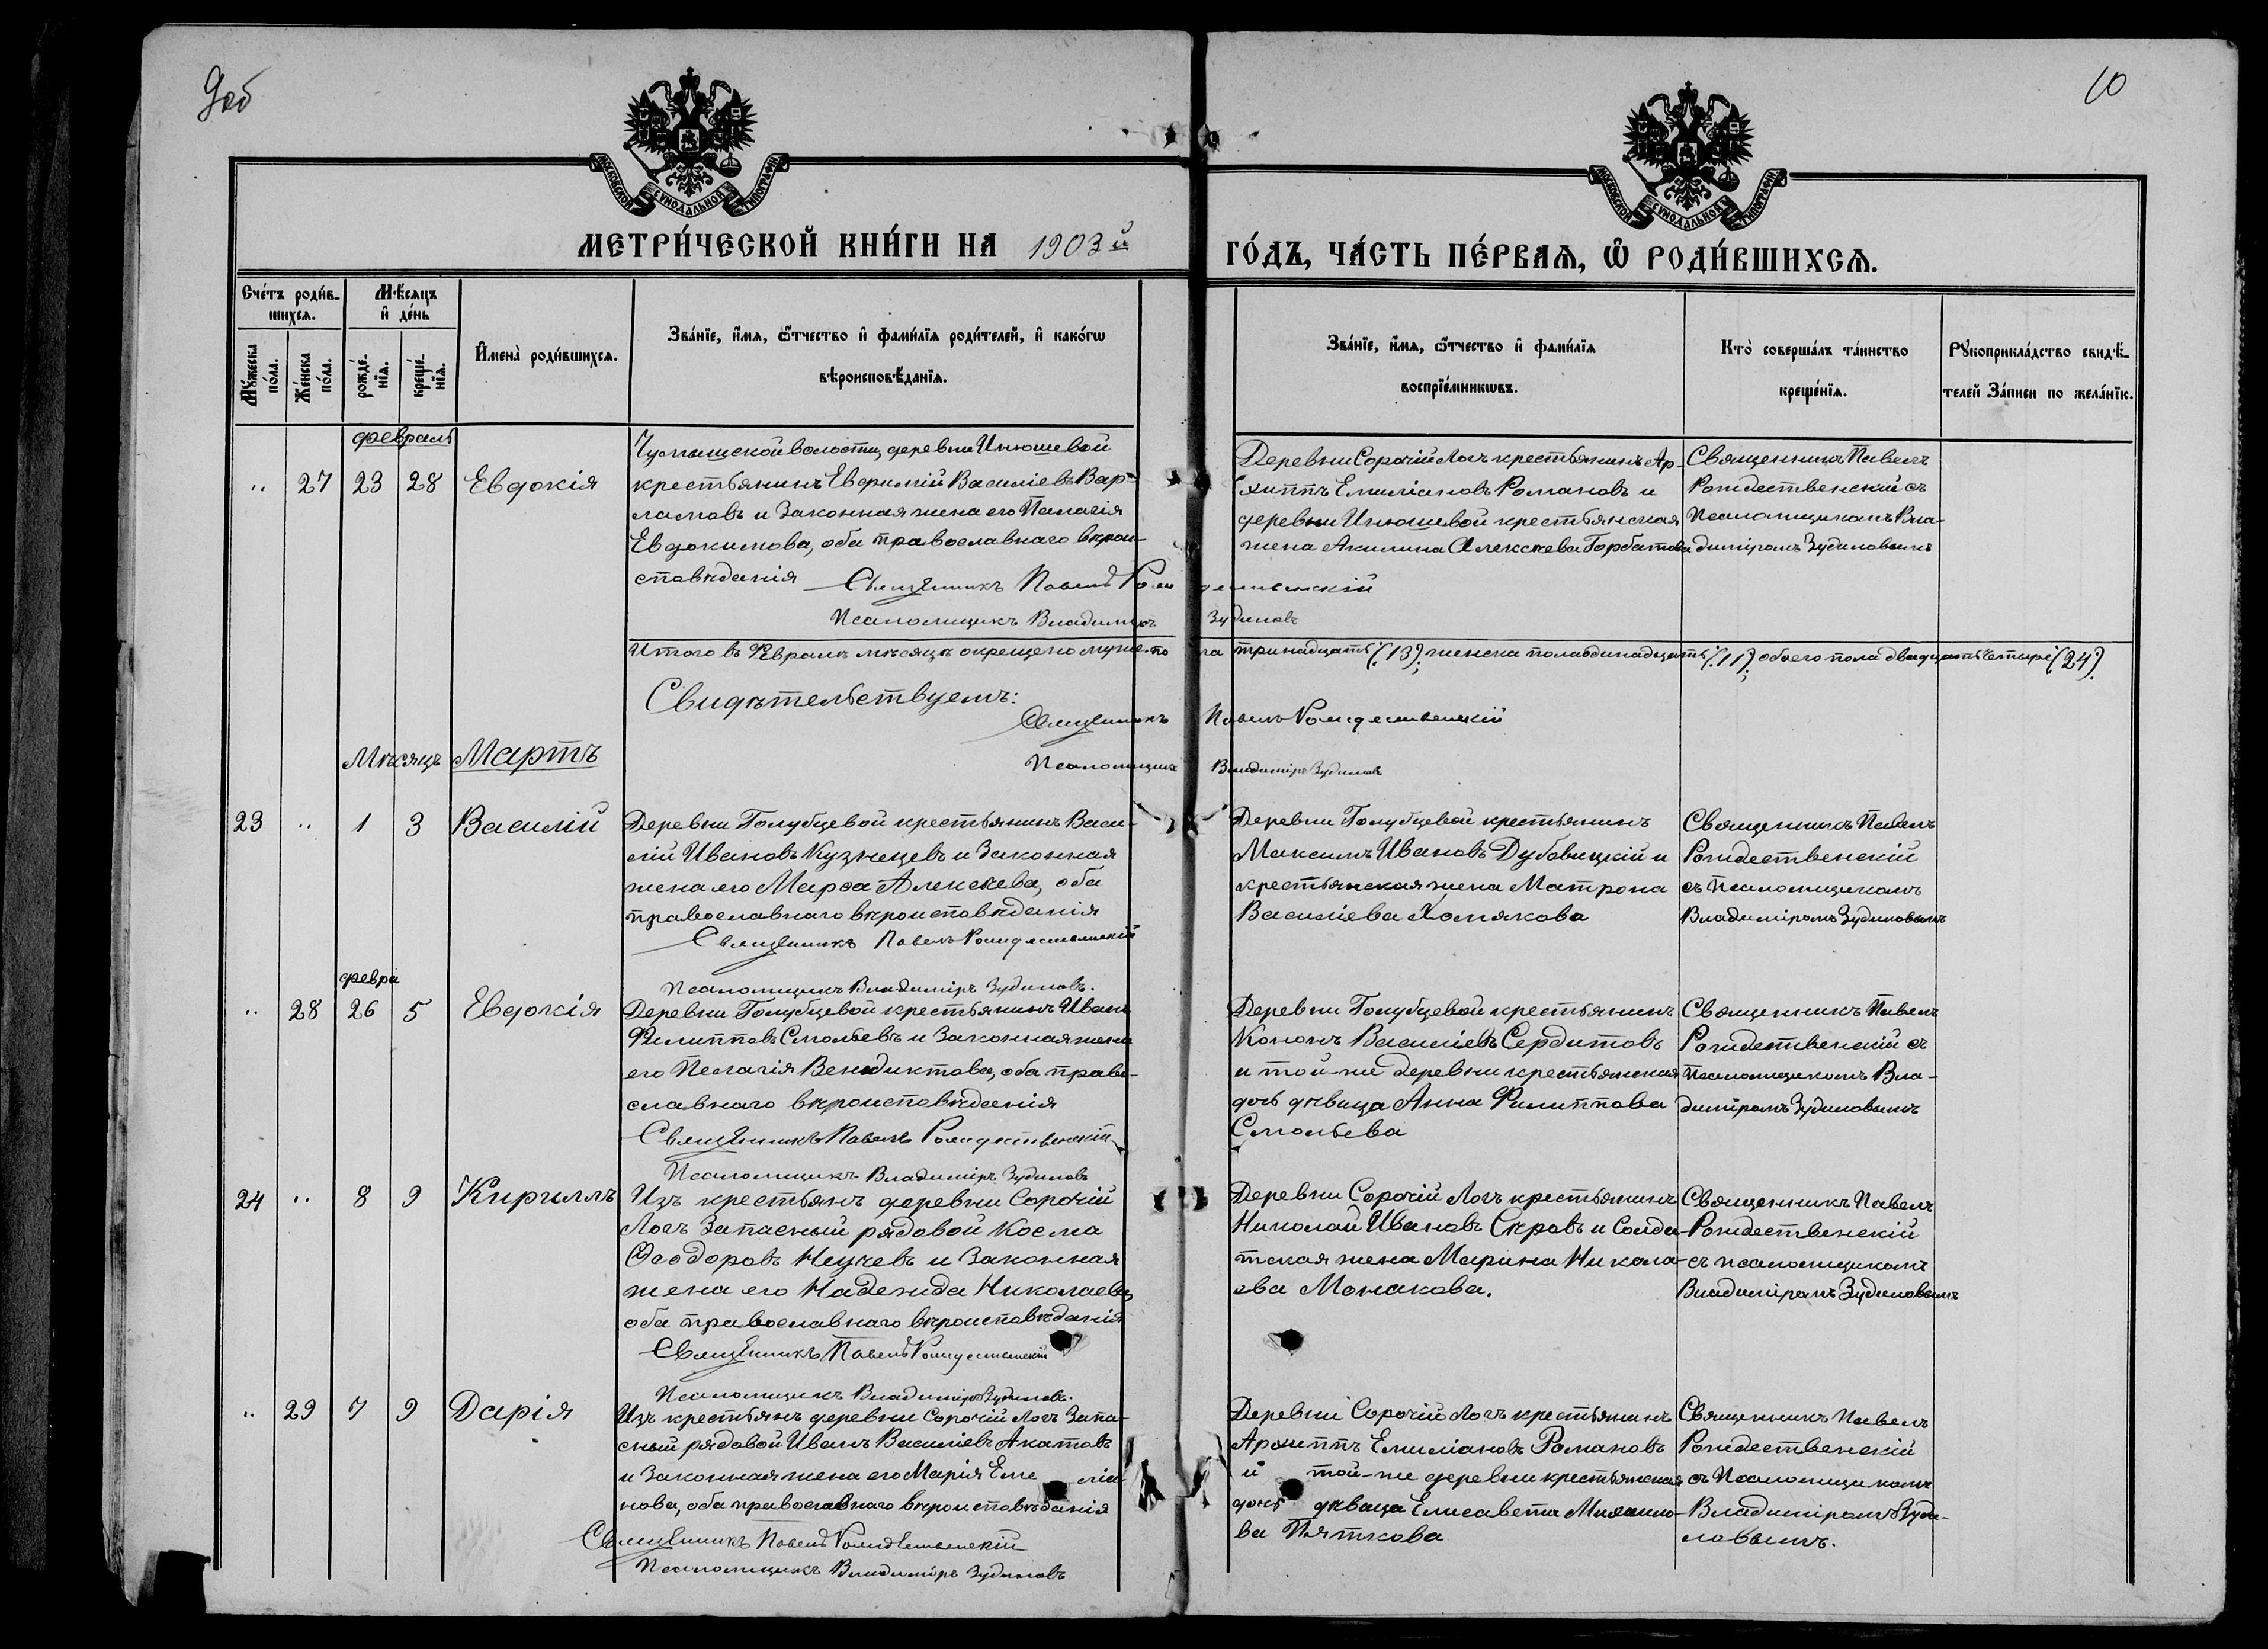 9об
10
МОСКОВСКОЙ СѴНОДАЛЬНОЙ ТИПОГРАФІИ
МОСКОВСКОЙ СѴНОДАЛЬНОЙ ТИПОГРАФІИ
МЕТРИ́ЧЕСКОЙ КНИ́ГИ НА 1903й ГО́ДЪ, ЧА́СТЬ ПЕ́РВАѦ, Ѽ РОДИ́ВШИХСѦ.
Сче́тъ роди́в-
шихсѧ.
Мꙋ́жеска по́ла.
Же́нска по́ла.
Мѣ́сѧцъ
и҆ де́нь
рожде́-
нїѧ.
креще́-
нїѧ.
И҆мена̀ роди́вшихсѧ.
Зва́нїе, и҆́мѧ, ѻ҆́тчество и҆ фами́лїѧ роди́телей, и҆ како́гѡ
вѣроисповѣ́данїѧ.
Зва́нїе, и҆́мѧ, ѻ҆́тчество и҆ фами́лїѧ
воспрїе́мникѡвъ.
Кто̀ соверша́лъ та́инство
креще́нїѧ.
Рꙋкоприкла́дство свидѣ́-
телей За́писи по жела́нїю.
февраль
" 27 23 28 Евдокія
Чумышской волости, деревни Инюшевой
крестьянинъ Евфимій Василіевъ Вар-
ламовъ и законная жена его Пелагія
Евдокимова, оба православнаго вѣрои-
сповѣданія
Деревни Сорочій Логъ крестьянинъ Ар-
хиппъ Емиліановъ Романовъ и
деревни Инюшевой крестьянская
жена Акилина Алексѣева Горбатова
Священникъ Павелъ
Рождественскій съ
Псаломщикомъ Вла-
диміромъ Зудиловымъ
Священникъ Павелъ Рождественскій
Псаломщикъ Владиміръ Зудиловъ
Итого въ Февралѣ мѣсяцѣ окрещено мужска пола тринадцать (13); женска пола одинадцать (11); обоего пола двадцать четыре (24).
Свидѣтельствуемъ:
Священникъ Павелъ Рождественскій
Псаломщикъ Владиміръ Зудиловъ
Мѣсяцъ Мартъ
23 " 1 3 Василій
Деревни Голубцевой крестьянинъ Васи-
лій Ивановъ Кузнецевъ и законная
жена его Марѳа Алексѣева, оба
православнаго вѣроисповѣданія
Священникъ Павелъ Рождественскій
Псаломщикъ Владиміръ Зудиловъ.
Деревни Голубцевой крестьянинъ
Максимъ Ивановъ Дубовицкій и
крестьянская жена Матрона
Василіева Хомякова
Священникъ Павелъ
Рождественскій
съ псаломщикомъ
Владиміромъ Зудиловымъ
февра
" 28 26 5 Евдокія
Деревни Голубцевой крестьянинъ Иванъ
Филипповъ Смольевъ и законная жена
его Пелагія Венедиктова, оба право-
славнаго вѣроисповѣданія
Священникъ Павелъ Рождественскій
Псаломщикъ Владиміръ Зудиловъ
Деревни Голубцевой крестьянинъ
Кононъ Василіевъ Сердитовъ
и той-же деревни крестьянская
дочь дѣвица Анна Филиппова
Смольева
Священникъ Павелъ
Рождественскій съ
Псаломщикомъ Вла-
диміромъ Зудиловымъ
24 " 8 9 Кириллъ
Изъ крестьянъ деревни Сорочій
Логъ запасный рядовой Косма
Ѳеодоровъ Неучевъ и законная
жена его Надежда Николаева,
оба православнаго вѣроисповѣданія
Священникъ Павелъ Рождественскій
Псаломщикъ Владиміръ Зудиловъ.
Деревни Сорочій Логъ крестьянинъ
Николай Ивановъ Сѣровъ и солда-
тская жена Марина Никола-
ева Монакова.
Священникъ Павелъ
Рождественскій
съ псаломщикомъ
Владиміромъ Зудиловымъ
" 29 7 9 Дарія
Изъ крестьянъ деревни Сорочій Логъ запа-
сный рядовой Иванъ Василіевъ Акатовъ
и законная жена его Марія Емелiа-
нова, оба православнаго вѣроисповѣданія
Священникъ Павелъ Рождественскій
Псаломщикъ Владиміръ Зудиловъ
Деревни Сорочій Логъ крестьянинъ
Архиппъ Емиліановъ Романовъ
и той-же деревни крестьянская
дочь дѣвица Елисавета Михаило-
ва Пяткова
Священникъ Павелъ
Рождественскій
съ Псаломщикомъ
Владиміромъ Зуди-
ловымъ.